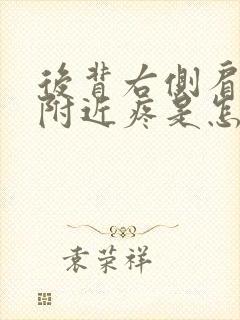 後背右側肩
附近疼是怎
袁荣祥